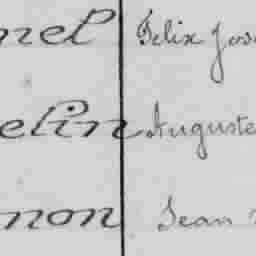 nel Félix Jos
elin Auguste
non Jean